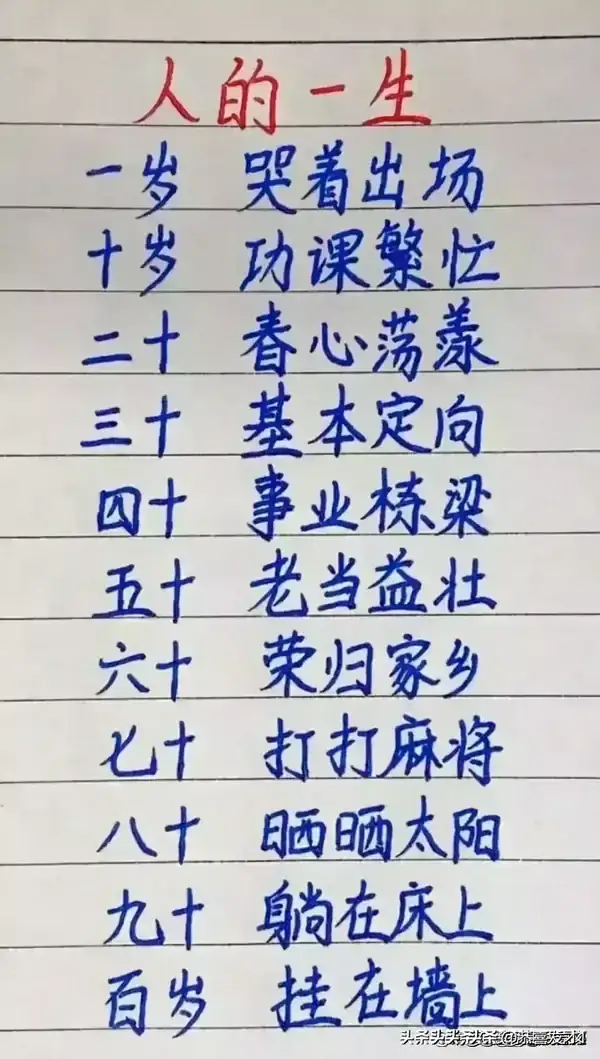 人的一生
一岁 哭着出场
十岁 功课繁忙
二十 春心荡漾
三十 基本定向
四十 事业栋梁
五十 老当益壮
六十 荣归家乡
七十 打打麻将
八十 晒晒太阳
九十 躺在床上
百岁 挂在墙上